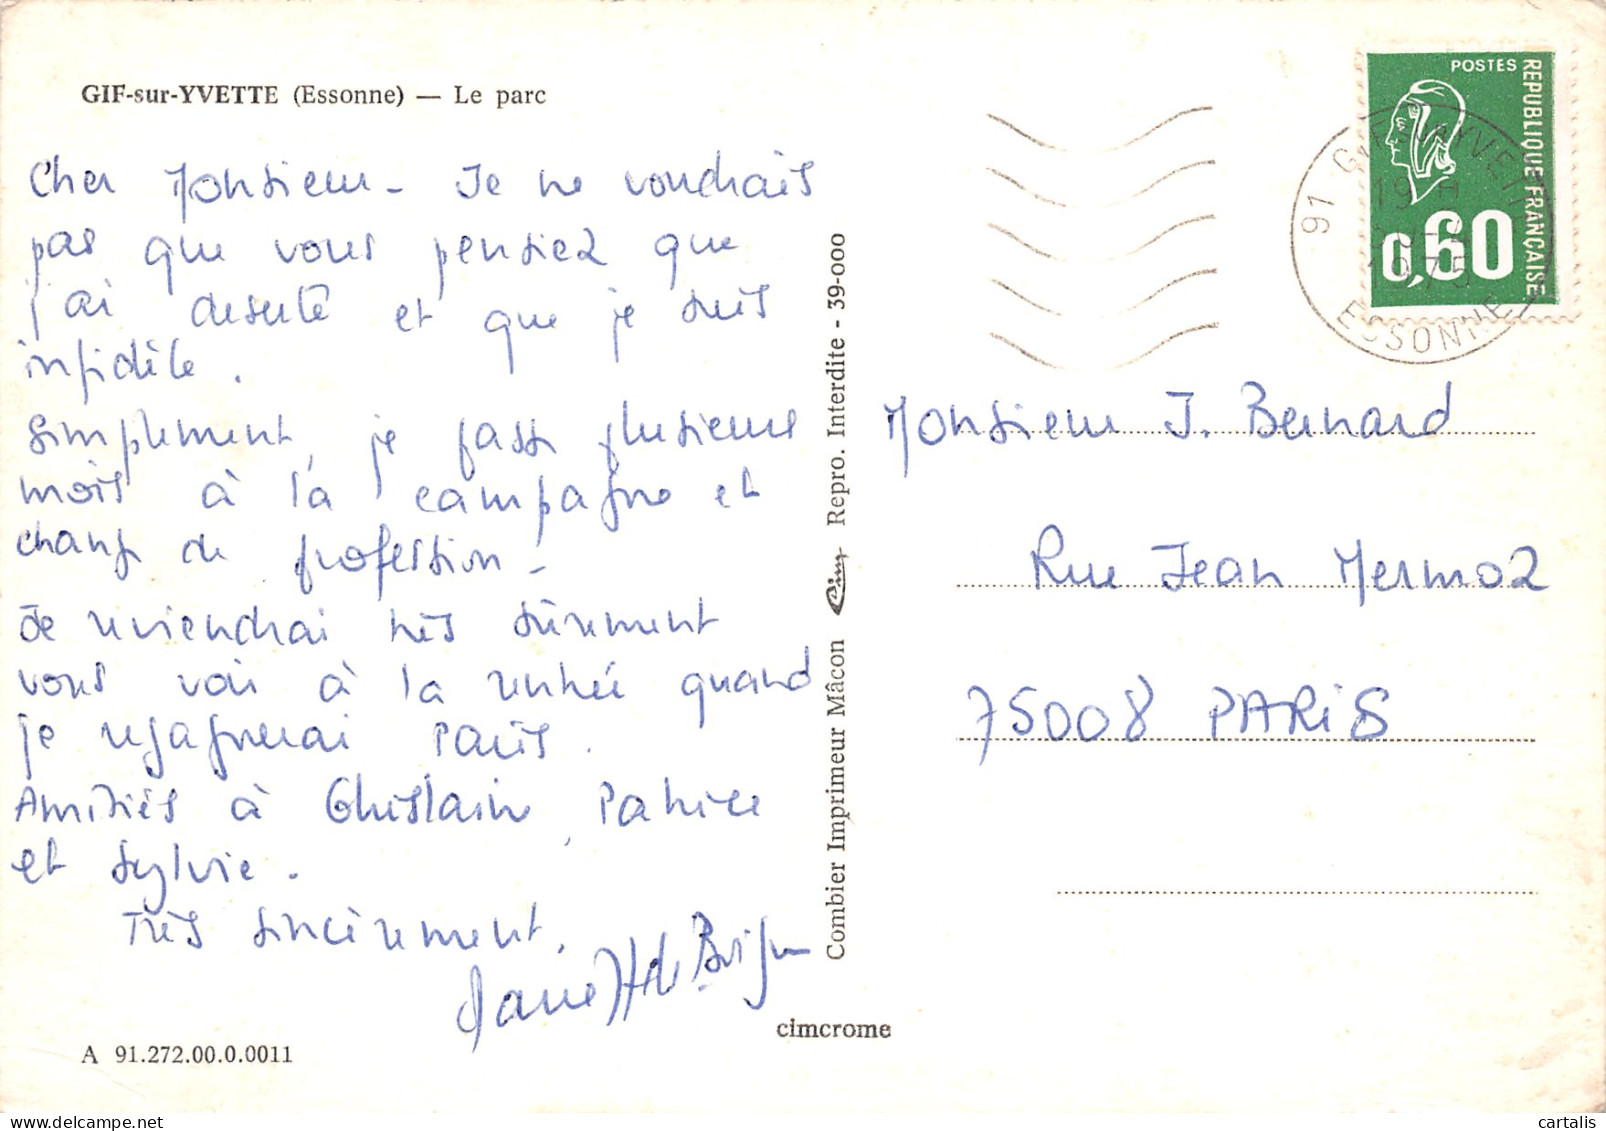 GIF-sur-YVETTE (Essonne) — Le parc
Cher Monsieur - Je ne voudrais
pas que vous pensiez que
j'ai deserté et que je suis
infidèle.
Simplement, je passe plusieurs
mois à la campagne et
change de profession -
Je reviendrai très sûrement
vous voir à la rentrée quand
je regagnerai Paris.
Amitiés à Ghislain, Patrice
et Sylvie.
Très sincèrement,
A 91.272.00.0.0011
cimcrome
Combier Imprimeur Mâcon Cim Repro. Interdite - 39-000
POSTES
REPUBLIQUE FRANÇAISE
0,60
91 GIF-S-YVETTE
19 H
1975
ESSONNE
Monsieur J. Bernard
Rue Jean Mermoz
75008 PARIS
cartalis